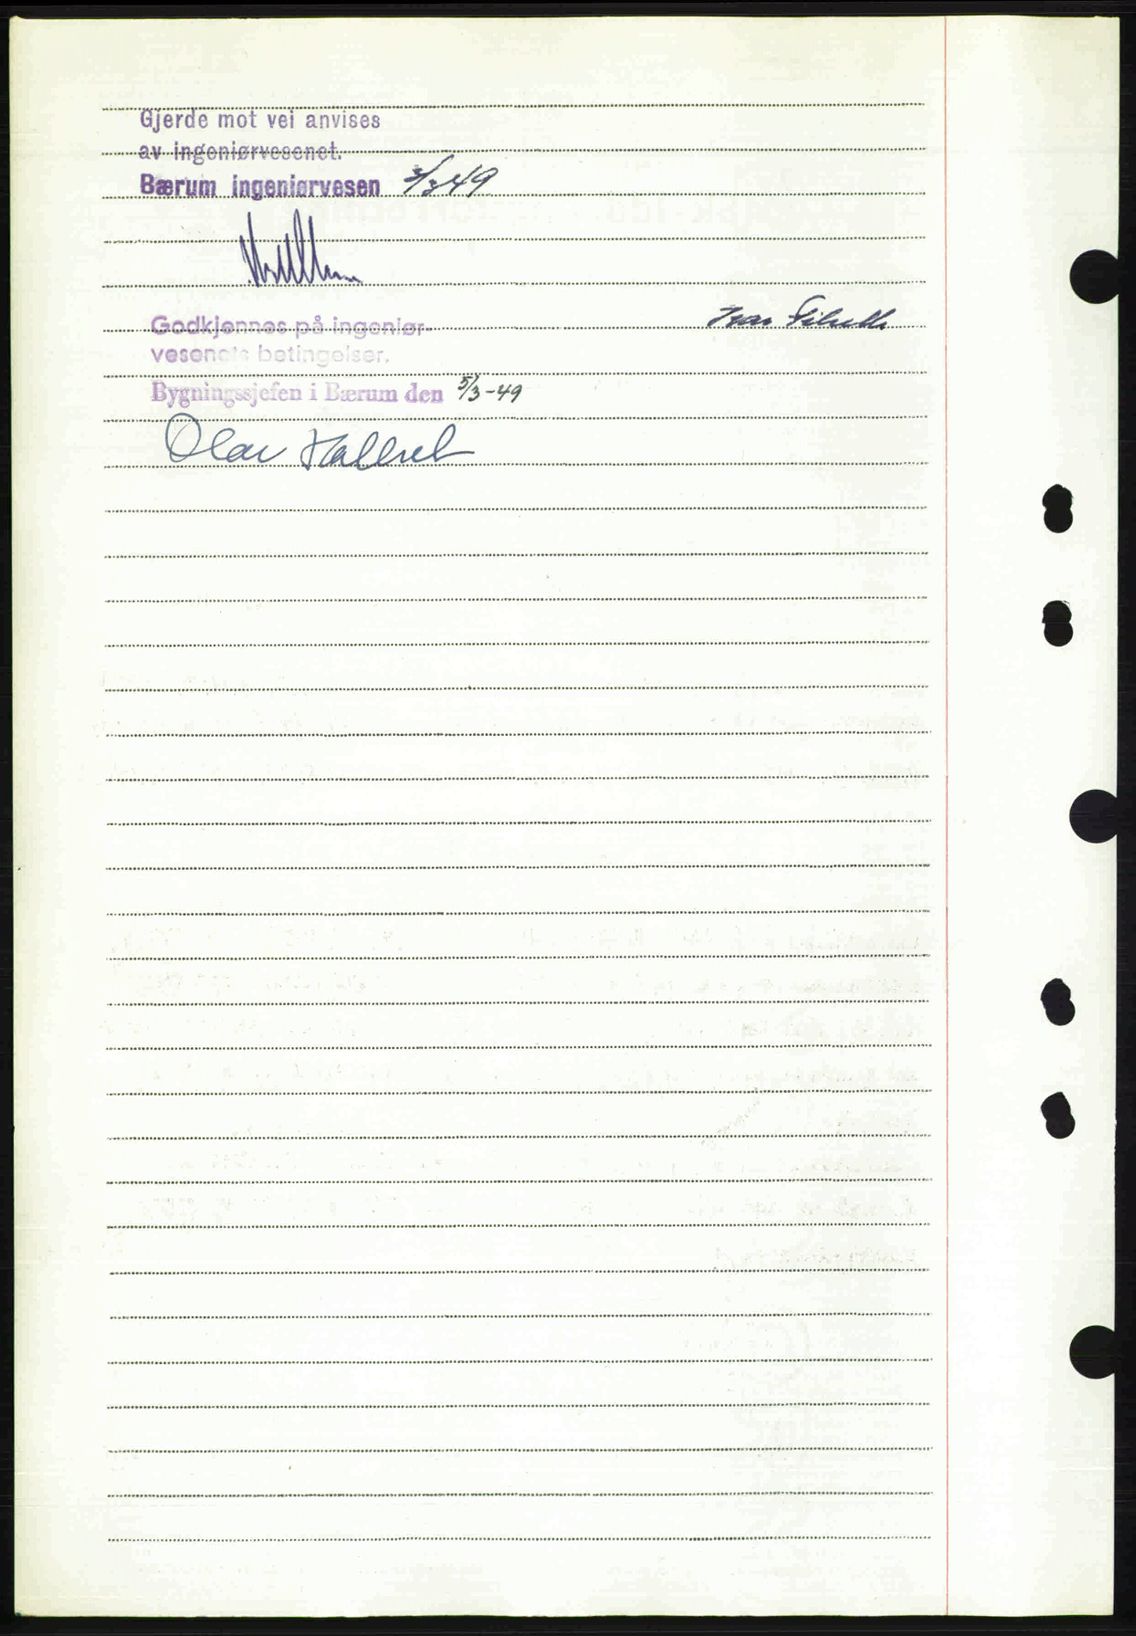 Gjerde mot vei anvises
av ingeniørvesenet.
Bærum ingeniørvesen 3/3 49
Godkjennes på ingeniør-
vesenets betingelser.
Bygningssjefen i Bærum den 5/3-49
Olav